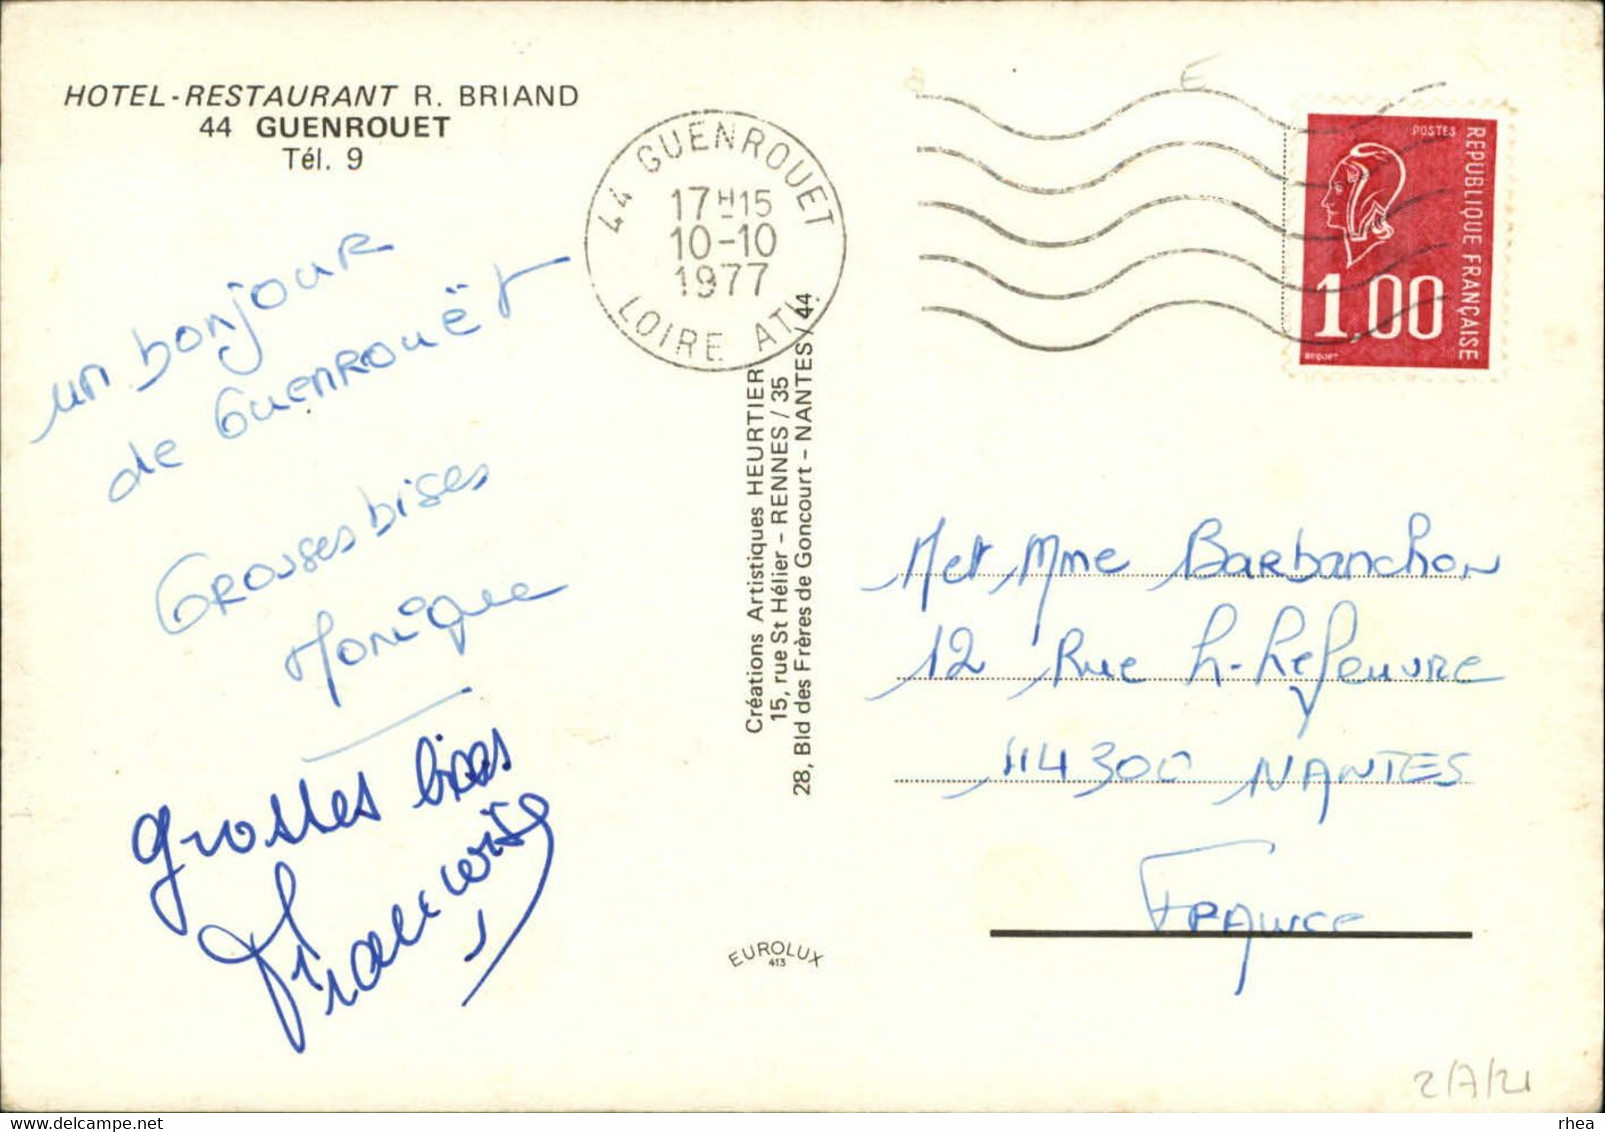 HOTEL-RESTAURANT R. BRIAND
44 GUENROUET
Tél. 9
un bonjour
de Guenrouët
Grosses bises
Monique
grosses bises
Françoise
44 GUENROUET
17H15
10-10
1977
LOIRE ATL.
Créations Artistiques HEURTIER
15, rue St Hélier - RENNES / 35
28, Bld des Frères de Goncourt - NANTES / 44
EUROLUX
413
E
POSTES
REPUBLIQUE FRANÇAISE
1,00
BEQUET
M et Mme Barbanchon
12 Rue h. Lefeuvre
44300 NANTES
FRANCE
2/7/21
rhea